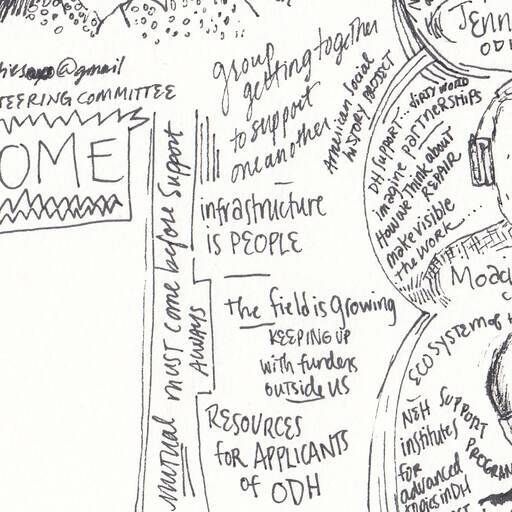 @gmail
STEERING COMMITTEE
OME
mutual must come before support
ALWAYS
group
getting together
to support
one another
American Social
HISTORY PROJECT
infrastructure
IS PEOPLE
the field is growing
KEEPING UP
with funders
outside US
RESOURCES
for APPLICANTS
of ODH
JENN
OD
DH SUPPORT... DIRTY WORD
imagine partnerships
How we think about
REPAIR
make visible
the work...
Moac
ECOSYSTEM of
NEH SUPPORT
PROGRAM
institutes
for
advanced
topics in DH